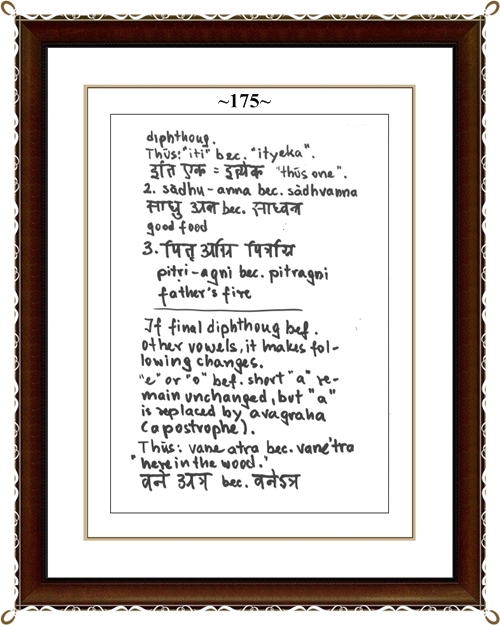 ~175~
diphthoug.
Thus: "iti" bec. "ityeka".
इति एक = इत्येक "thus one".
2. sādhu-anna bec. sādhvanna
साधु अन bec. साध्वन
good food
3. पितृ अग्रि पित्रग्रि
pitṛi-agni bec. pitragni
father's fire
If final diphthoug bef.
other vowels, it makes fol-
lowing changes.
"e" or "o" bef. short "a" re-
main unchanged, but "a"
is replaced by avagraha
(apostrophe).
Thūs: vane atra bec. vane'tra
"here in the wood."
वने अत्र bec. वनेऽत्र